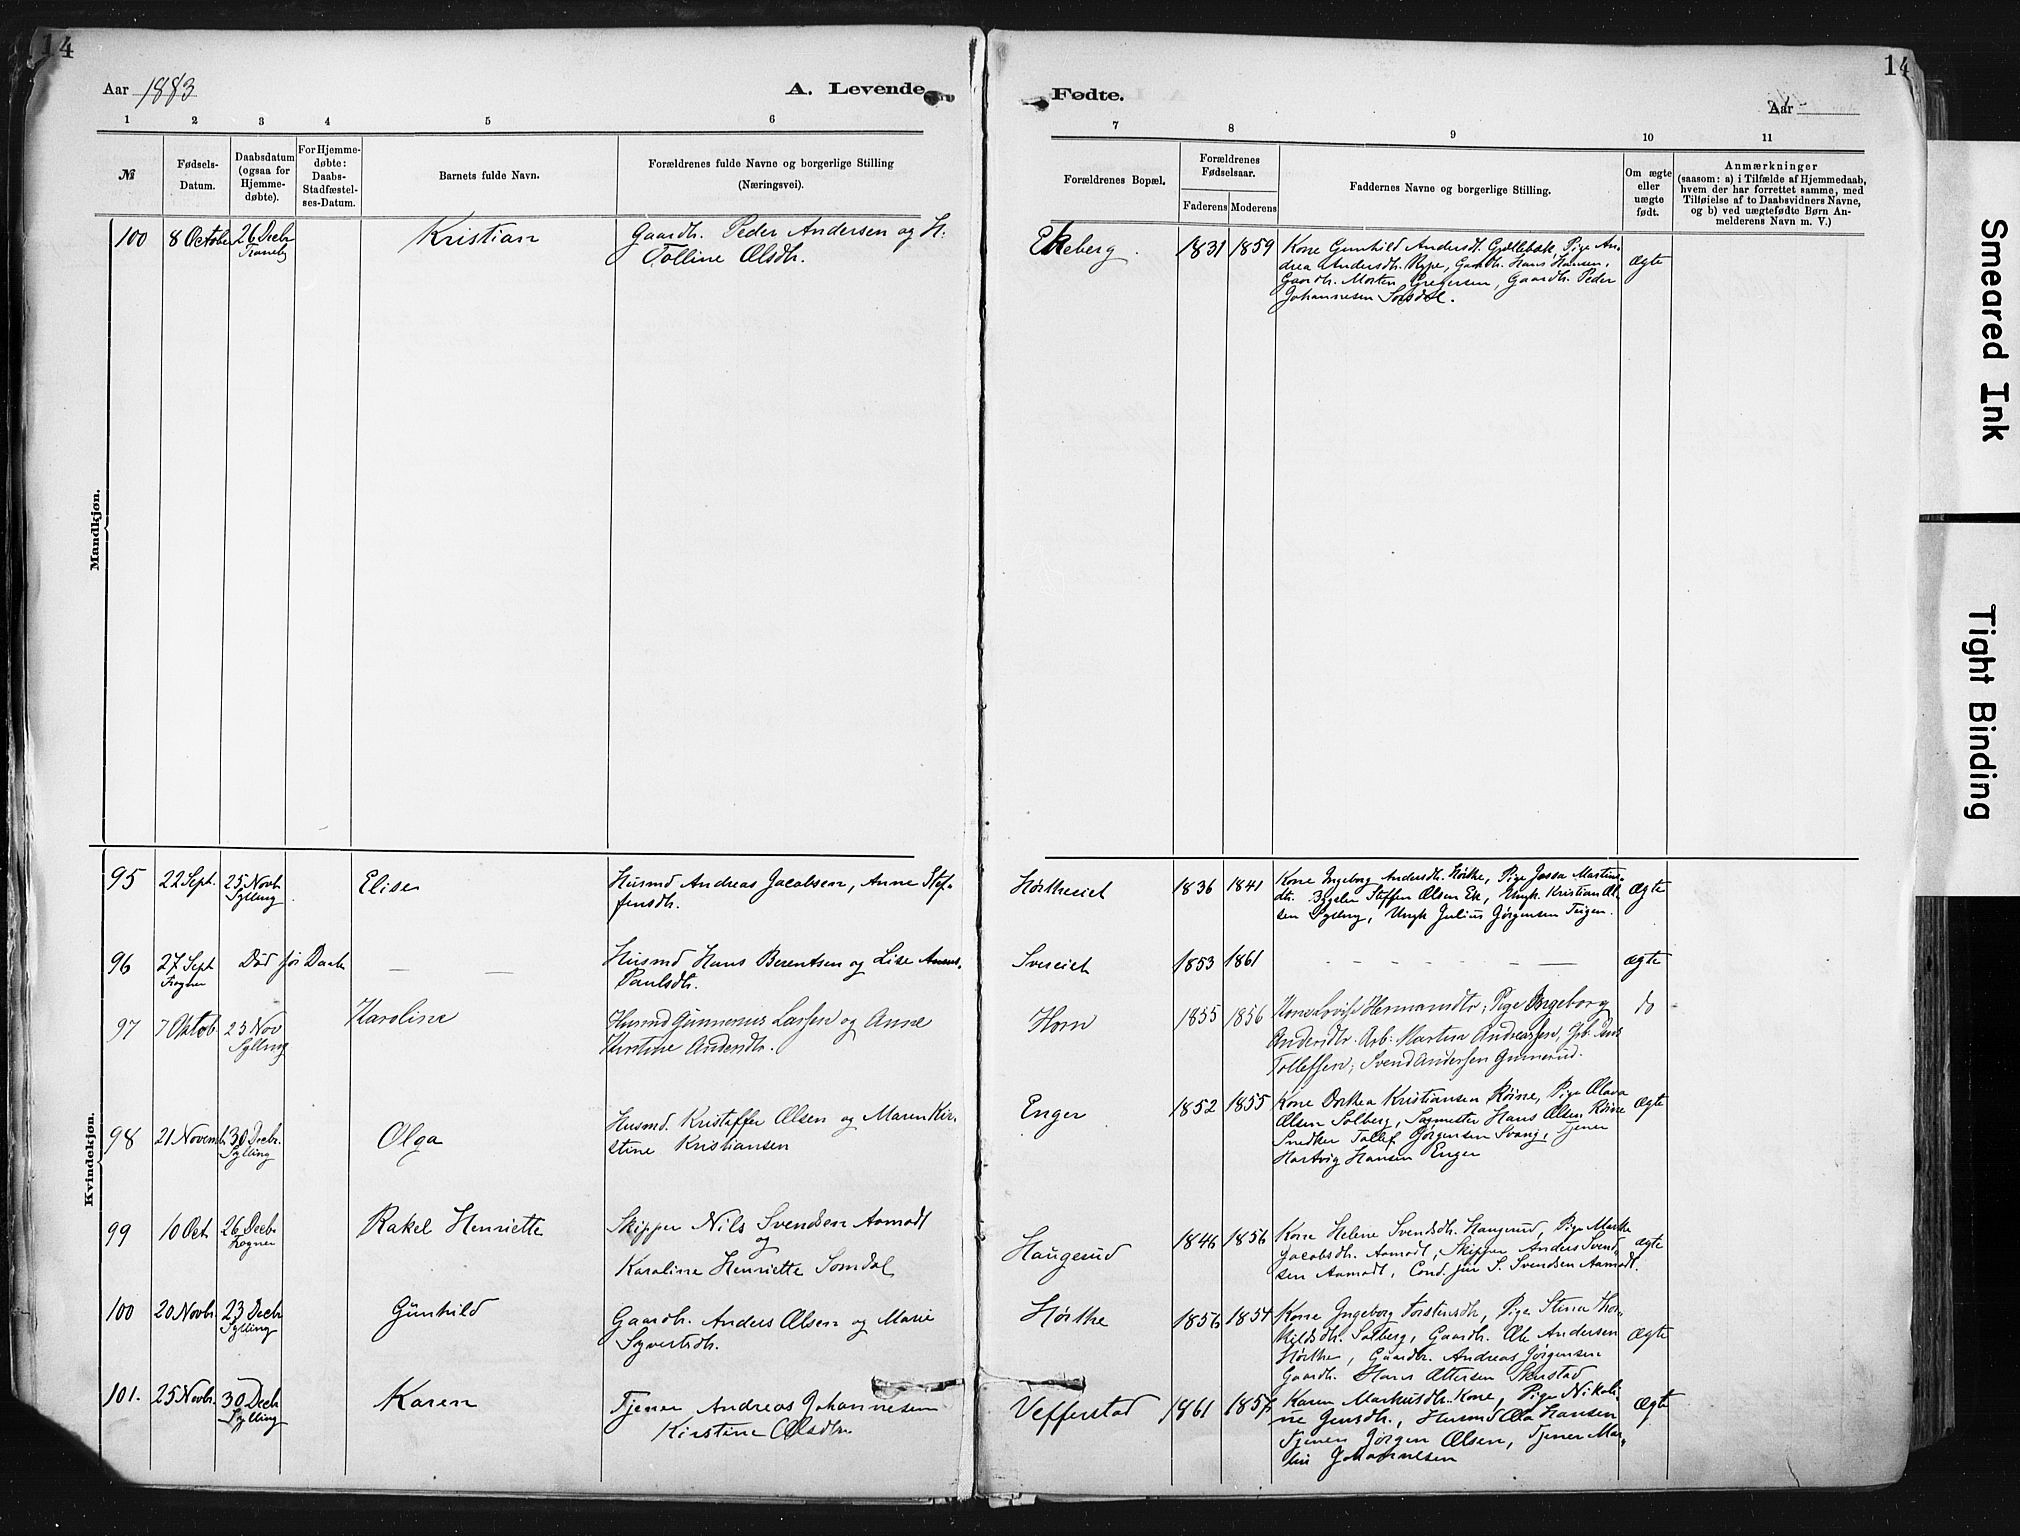 14
14
Aar 1883
A. Levende
Fødte.
Aar
1 2 3 4 5 6 7 8 9 10 11
№
Fødsels-
Datum.
Daabsdatum
(ogsaa for
Hjemme-
døbte).
For Hjemme-
døbte:
Daabs-
Stadfæstel-
ses-Datum.
Barnets fulde Navn.
Forældrenes fulde Navne og borgerlige Stilling
(Næringsvei).
Forældrenes Bopæl.
Forældrenes
Fødselsaar.
Faderens Moderens
Faddernes Navne og borgerlige Stilling.
Om ægte
eller
uægte
født.
Anmærkninger
(saasom: a) i Tilfælde af Hjemmedaab,
hvem der har forrettet samme, med
Tilføielse af to Daabsvidners Navne,
og b) ved uægtefødte Børn An-
melderens Navn m. V.)
Mandkjøn.
100 8 October 26 Decbr Kristian Gaardbr. Peder Andersen og H.
Tolline Olsdtr.
Ekeberg 1831 1859 Kone Gunhild Andersdt. Gjellebæk, Pige An-
drea Andersdtr. Rype, Gaardbr. Hans Hansen,
Gaardbr. Morten Gregersen, Gaardbr. Peder
Johannesen Solsdal.
ægte
Kvindekjøn.
95 22 Sept. 25 Novb. Sylling Elise Husmd Andreas Jacobsen, Anne Stef-
fensdtr.
Hørtheeiet 1836 1841 Kone Ingeborg Andersdtr. Hørthe, Pige Martine
dtr. Steffen Olsen Ek, Ungk. Kristian Ol-
sen Sylling, Ungk Julius Jørgensen Teigen.
ægte
96 27 Sept Død før Daab — — Husmd Hans Berentsen og Lise
Paulsdtr.
Sveeiet 1853 1861 ægte
97 7 Oktob. 25 Nov Sylling Karoline Husmd Gunnerius Larsen og Anne
Kirstine Andersdtr.
Horn 1855 1856 Kone Lovise Hermansdtr, Pige Ingeborg
Andersdtr. Arb: Martin Andreassen, Arb. Jens
Tollefsen, Svend Andersen Gunnerud.
do
98 21 Novemb. 30 Decbr. Sylling Olga Husmd. Kristoffer Olsen og Maren Kir-
stine Kristiansen
Enger 1852 1855 Kone Dorthea Kristiansen Röisne, Pige Olava
Olsen Solberg, Sagmester Hans Olsen Röisne
Snedker Tollef Jørgensen Svang, Tjener
Hartvig Hansen Enger
ægte
99 10 Oct. 26 Decbr. Rakel Henriette Skipper Nils Svendsen Aamodt
og
Karoline Henriette Somdal
Haugerud 1846 1856 Kone Helene Svendsdtr. Haugerud, Pige Marthe
Jacobsdtr. Aamodt, Skipper Anders Svend-
sen Aamodt, Cand. jur S. Svendsen Aamodt.
ægte
100 20 Novbr. 23 Decbr Sylling Gunhild Gaardbr. Anders Olsen og Marie
Syvertsdtr.
Hørthe 1856 1854 Kone Ingeborg Torstensdtr, Pige Stina Thor-
kildsdtr. Solberg, Gaardbr. Ole Andersen
Hørthe, Gaardbr. Andreas Jørgensen
Gaardbr. Hans Ottersen Skerstad
ægte
101. 25 Novbr. 30 Decbr Sylling Karen Tjener Andreas Johannesen
Kirstine Olsdtr
Vefferstad 1861 1857 Karen Markusdtr. Kone, Pige Nikoli-
ne Jensdtr., Husmd Ole Hansen
Tjener Jørgen Olsen, Tjener Mar-
tin Johannesen
ægte
Smeared Ink
Tight Binding